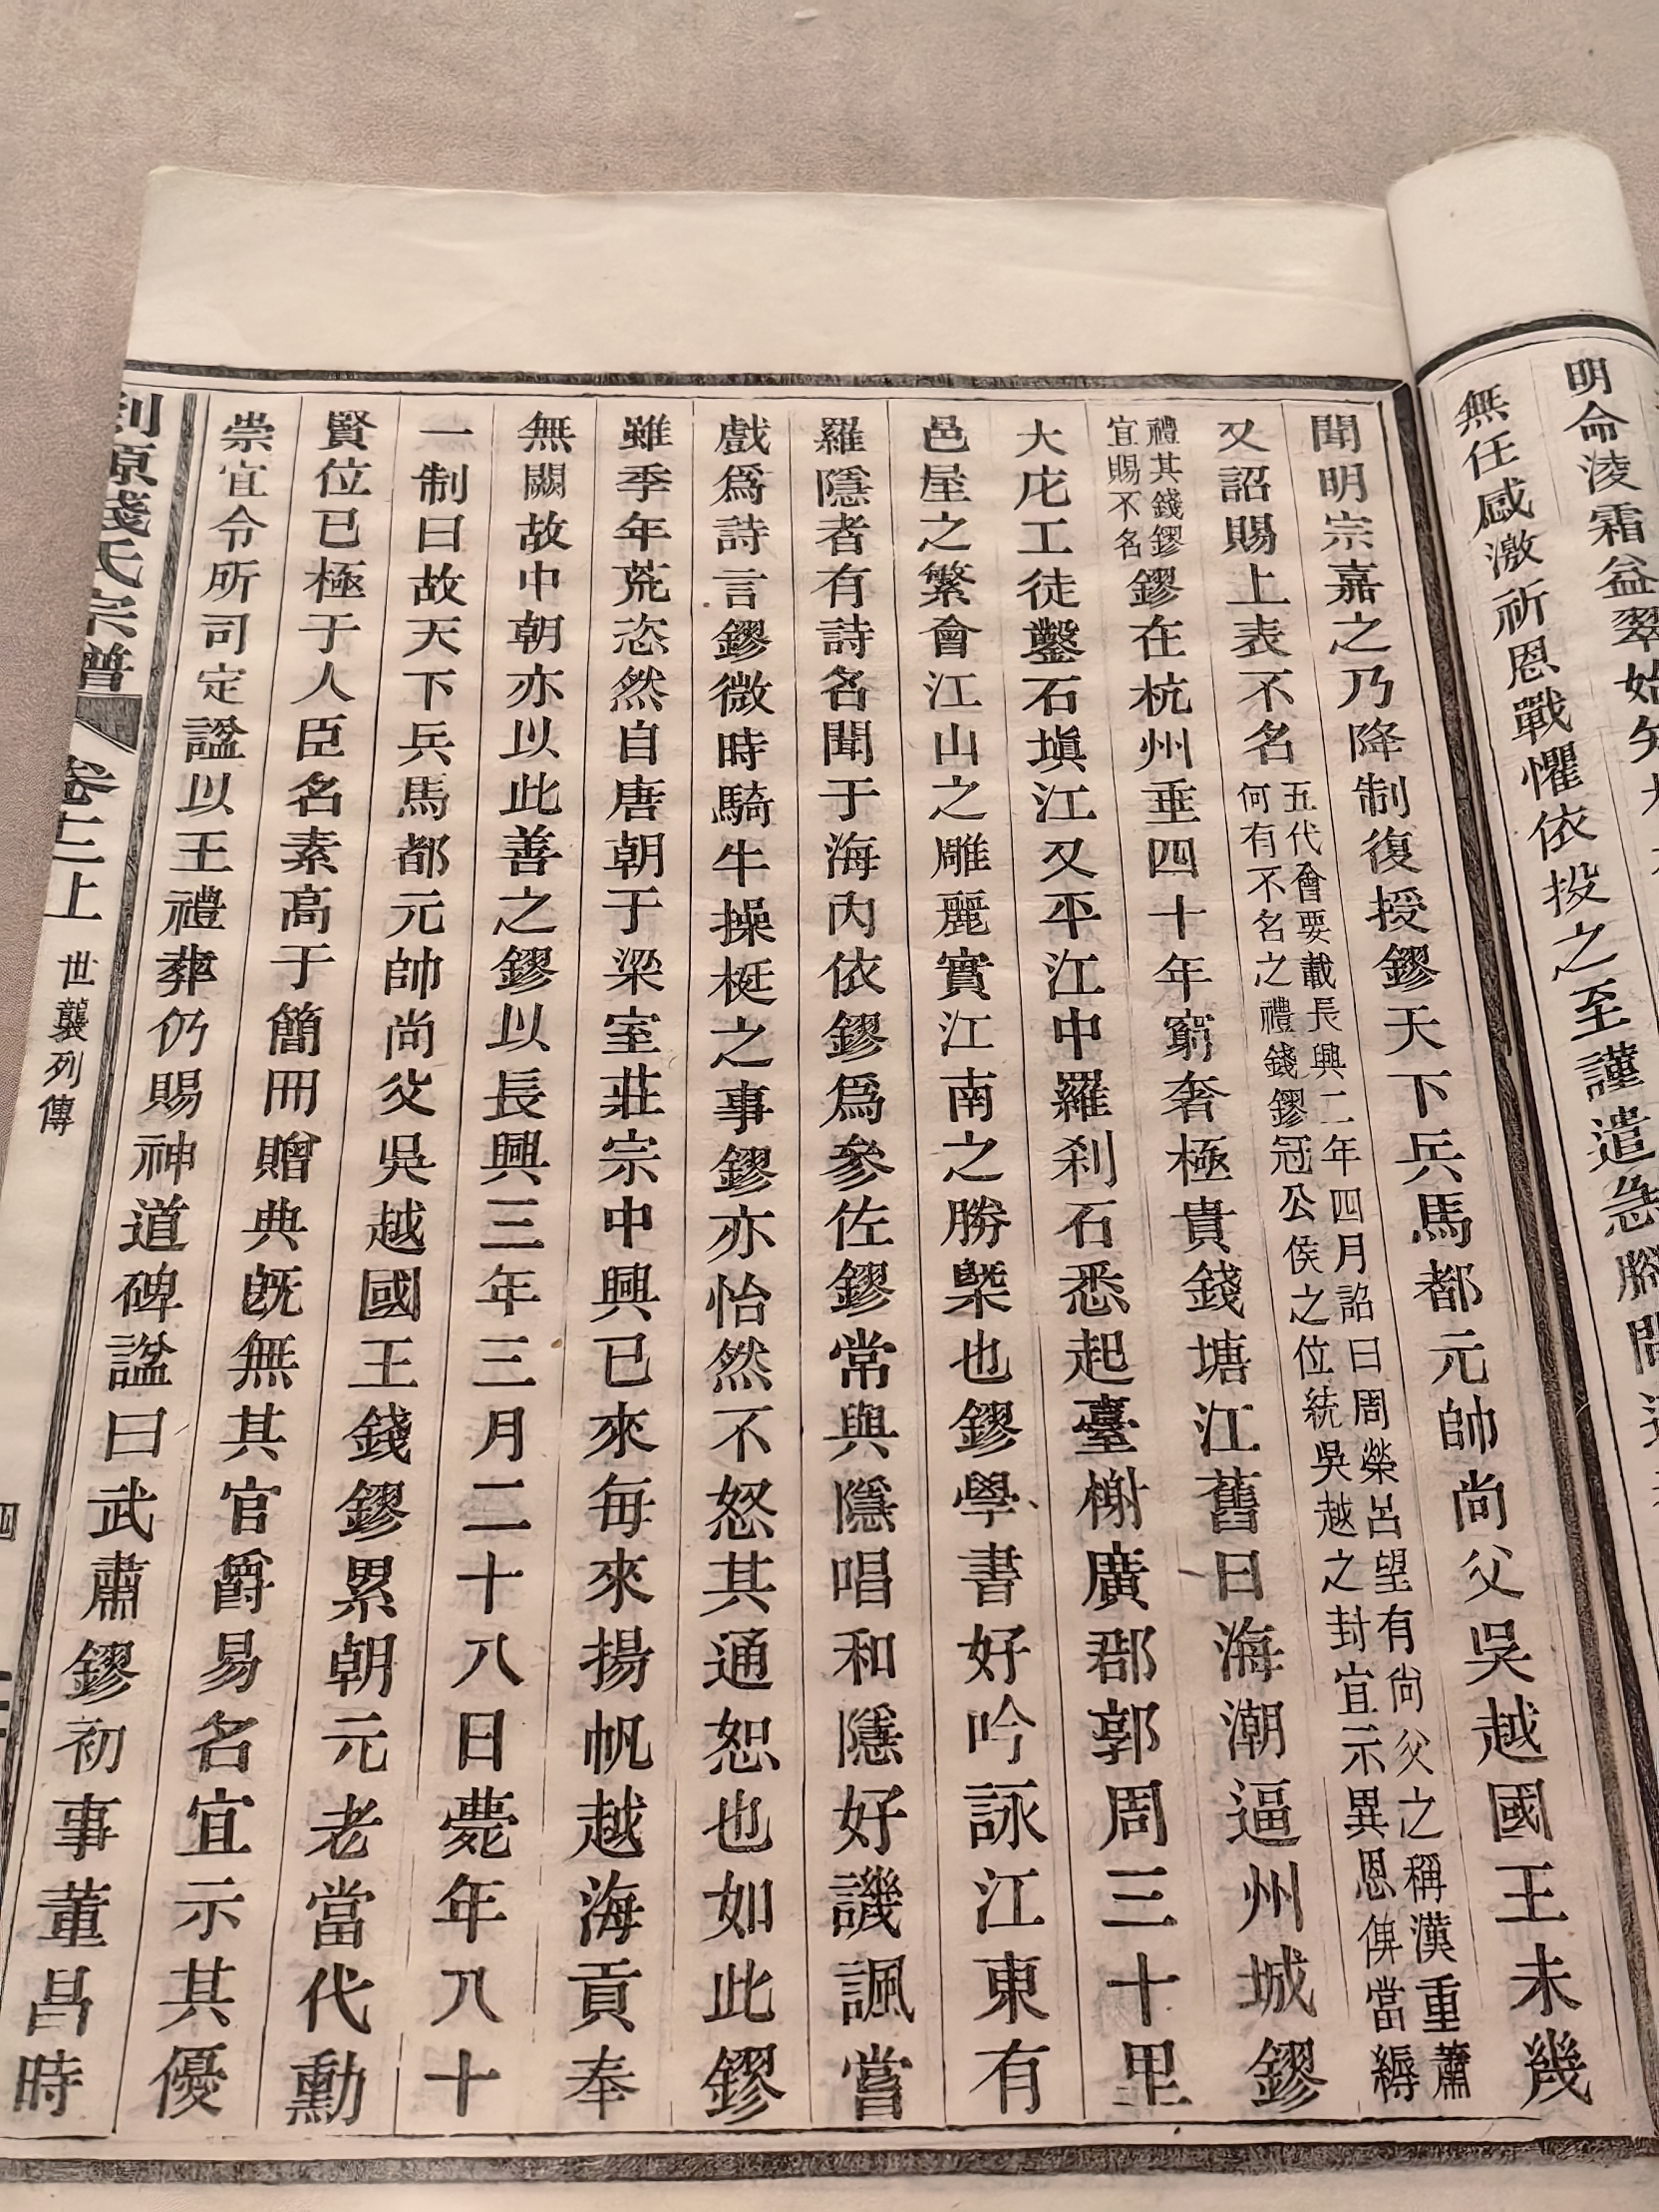 明命淩霜益翠始
無任感激祈恩戰懼依投之至謹遣急腳間
聞明宗嘉之乃降制復授鏐天下兵馬都元帥尚父吳越國王未幾
又詔賜上表不名五代會要載長興二年四月詔曰周榮呂望有尙父之稱漢重蕭
何有不名之禮錢鏐冠公侯之位統吳越之封宜示異恩俾當縟
禮其錢鏐
宜賜不名鏐在杭州垂四十年窮奢極貴錢塘江舊日海潮逼州城鏐
大庀工徒鑿石塡江又平江中羅刹石悉起臺榭廣郡郭周三十里
邑屋之繁會江山之雕麗實江南之勝槩也鏐學書好吟詠江東有
羅隱者有詩名聞于海內依鏐爲參佐鏐常與隱唱和隱好譏諷嘗
戲爲詩言鏐微時騎牛操梃之事鏐亦怡然不怒其通恕也如此鏐
雖季年荒恣然自唐朝于梁室莊宗中興已來每來揚帆越海貢奉
無闕故中朝亦以此善之鏐以長興三年三月二十八日薨年八十
一制曰故天下兵馬都元帥尚父吳越國王錢鏐累朝元老當代勳
賢位已極于人臣名素高于簡冊贈典旣無其官爵易名宜示其優
崇宜令所司定諡以王禮葬仍賜神道碑諡曰武肅鏐初事董昌時
剡源錢氏宗譜 卷二上 世襲列傳